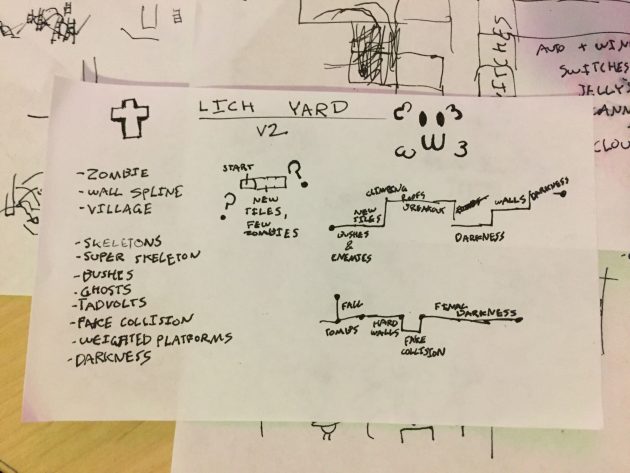 LICH YARD
V2
-ZOMBIE
-WALL SPLINE
-VILLAGE
-SKELETONS
-SUPER SKELETON
-BUSHES
-GHOSTS
-TADVOLTS
-FAKE COLLISION
-WEIGHTED PLATFORMS
-DARKNESS
START
?
?
NEW
TILES,
FEW
ZOMBIES
CLIMBING
ROOFS
BREAKOUT
NEW
TILES
BUSHES
&
ENEMIES
DARKNESS
WALLS
DARKNESS
FALL
TOMBS
HARD
WALLS
FAKE
COLLISION
FINAL
DARKNESS
AND + WIN
SWITCHES
JELLYS
CANN
CLOU